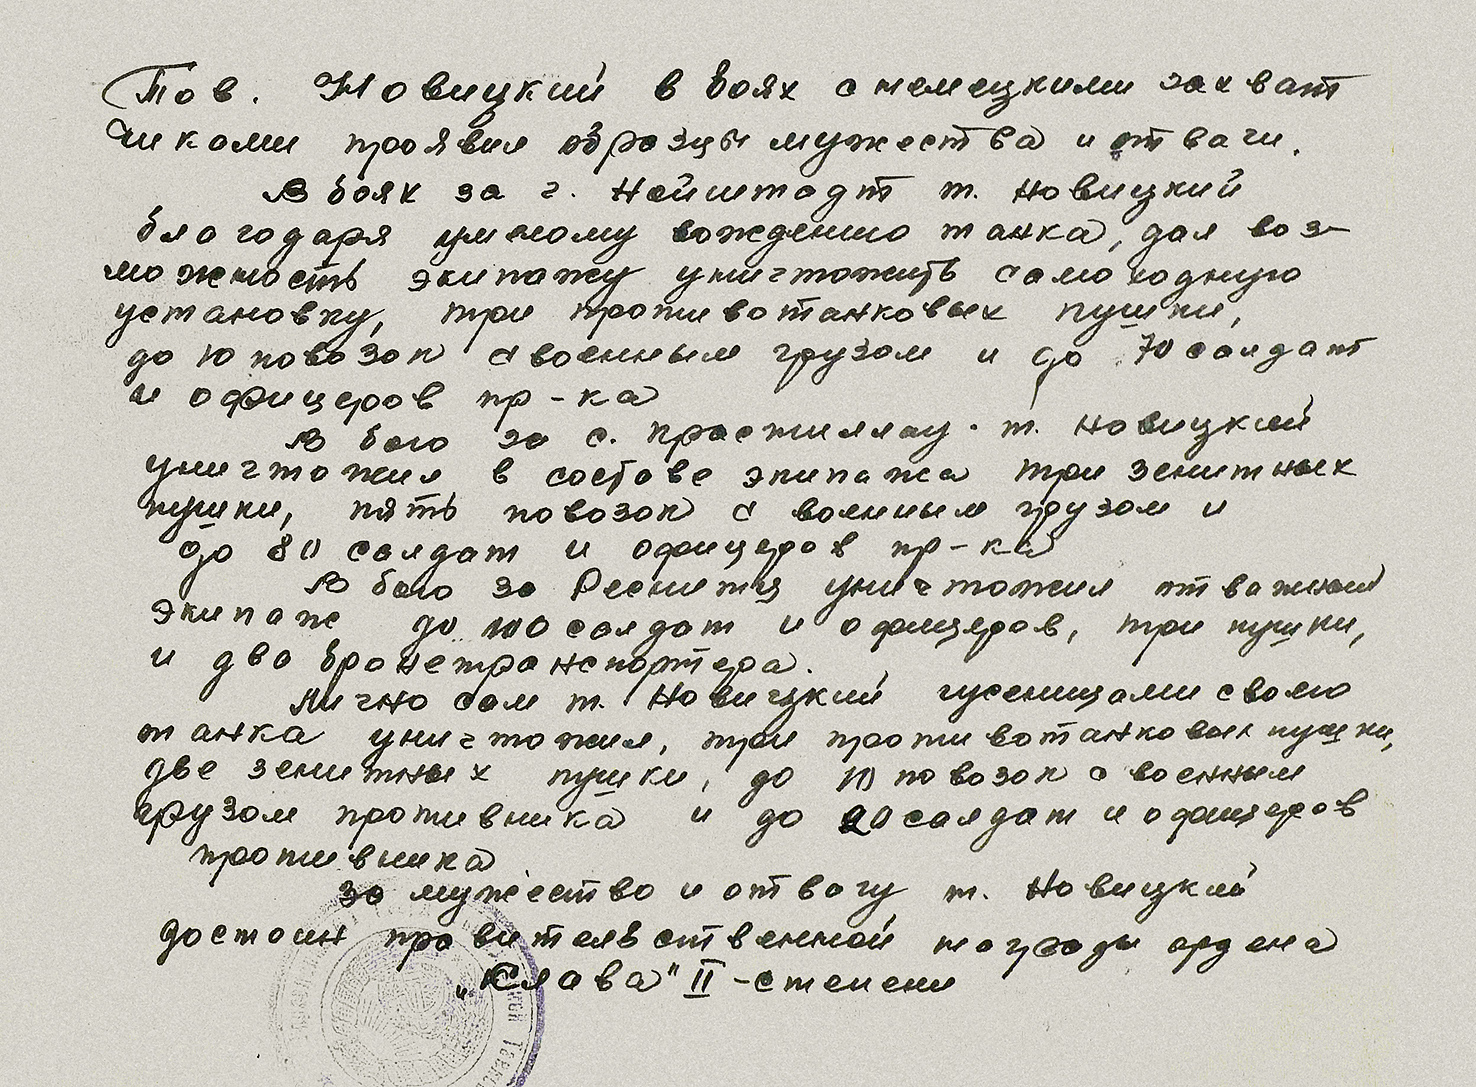 Тов. Новицкий в боях с немецкими захват
чиками проявил образцы мужества и отваги.
В боях за г. Нейштадт т. Новицкий
благодаря умелому вождению танка, дал воз-
можность экипажу уничтожить самоходную
установку, три противотанковых пушки,
до 10 повозок с военным грузом и до 70 солдат
и офицеров пр-ка
В бою за с. т. Новицкий
уничтожил в составе экипажа три зенитных
пушки, пять повозок с военным грузом и
до 80 солдат и офицеров пр-ка
В бою за уничтожил отважный
экипаж до 100 солдат и офицеров, три пушки,
и два бронетранспортера.
Лично сам т. Новицкий гусеницами своего
танка уничтожил, три противотанковых пушки,
две зенитных пушки, до 10 повозок с военным
грузом противника и до 20 солдат и офицеров
противника
За мужество и отвагу т. Новицкий
достоин правительственной награды ордена
„Слава" II -степени